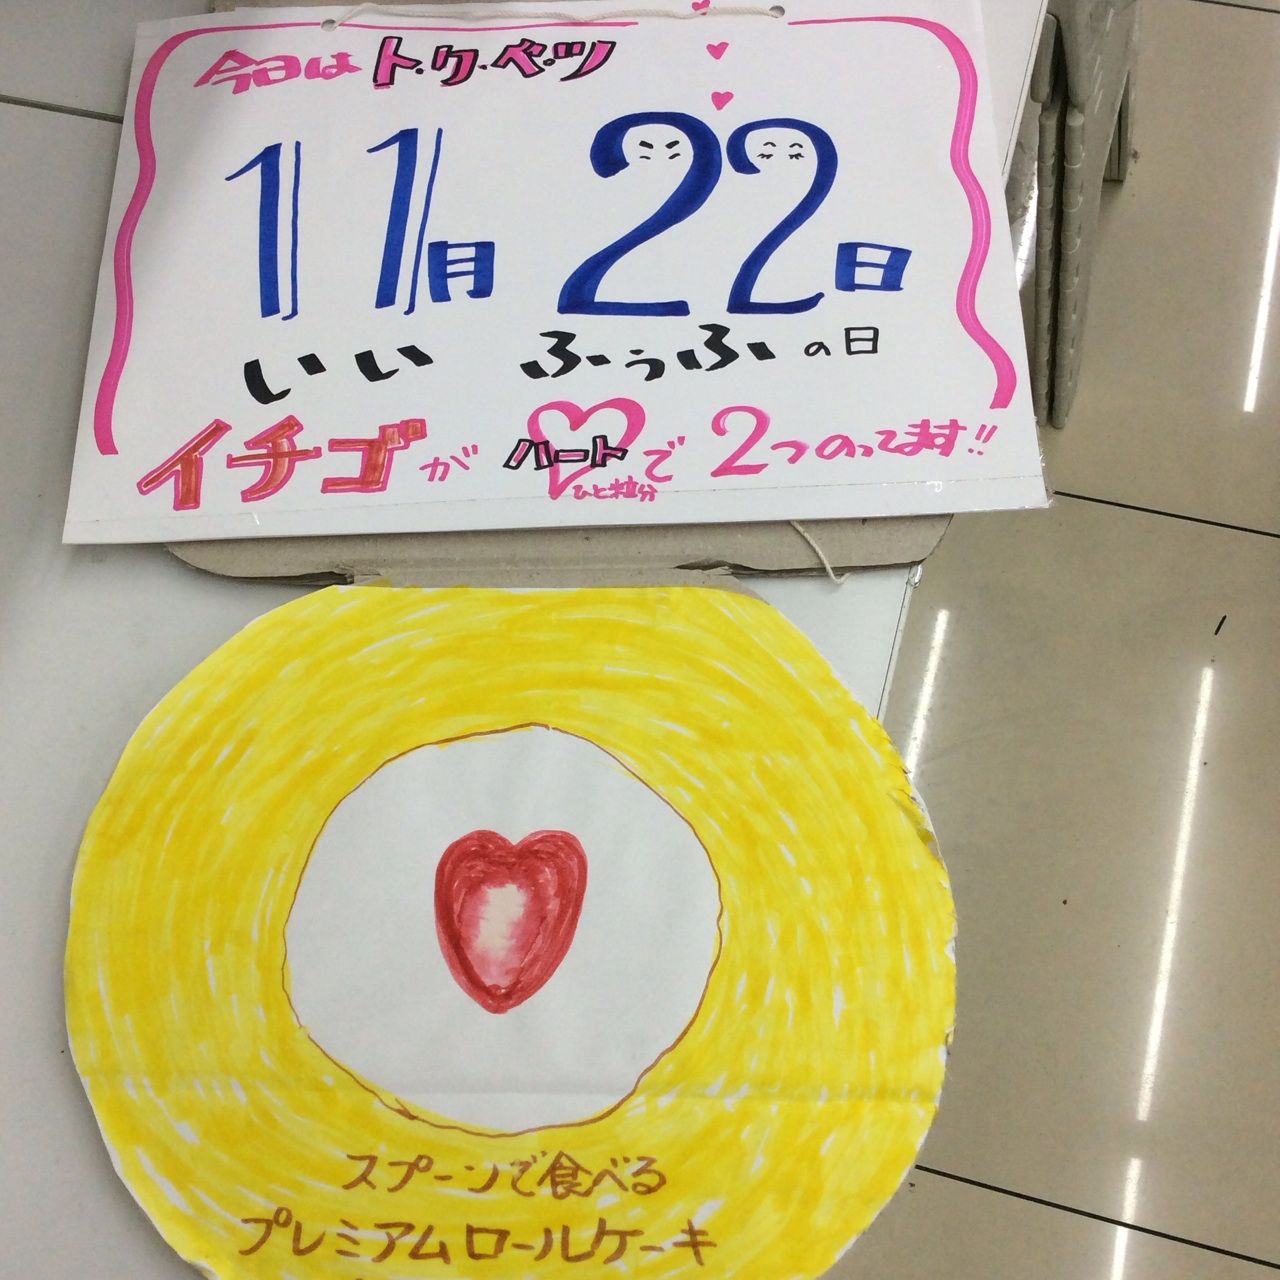 今日はト・ク・ベ・ツ
11月22日
いい ふぅふの日
イチゴがハートで2つのってます!!
ひと粒分
スプーンで食べる
プレミアムロールケーキ